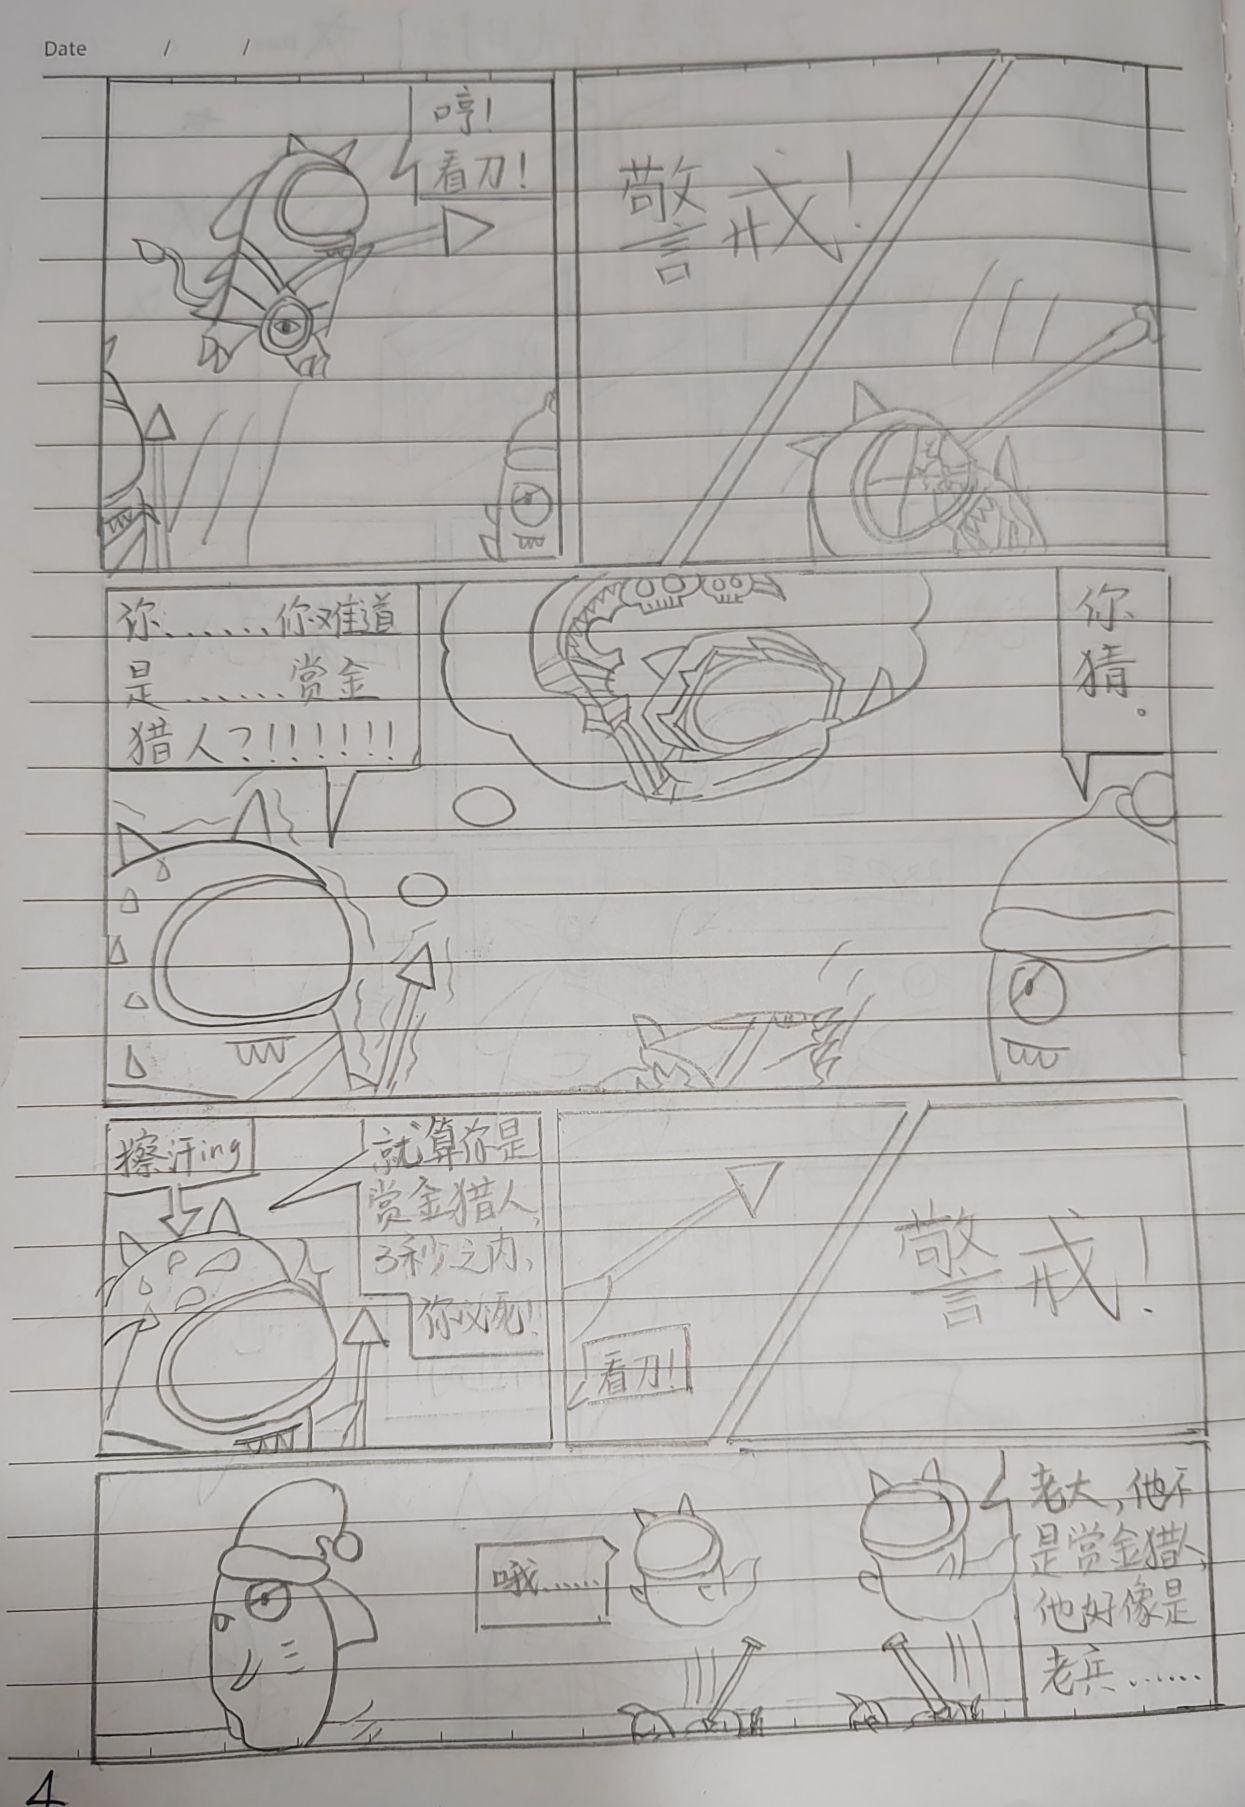 Date / /
哼!
看刀!
警戒!
你……你难道
是……赏金
猎人?!!!!!!
你
猜。
擦汗ing
就算你是
赏金猎人,
3秒之内,
你必死!
看刀!
警戒!
哦……
老大,他不
是赏金猎人,
他好像是
老兵……
4